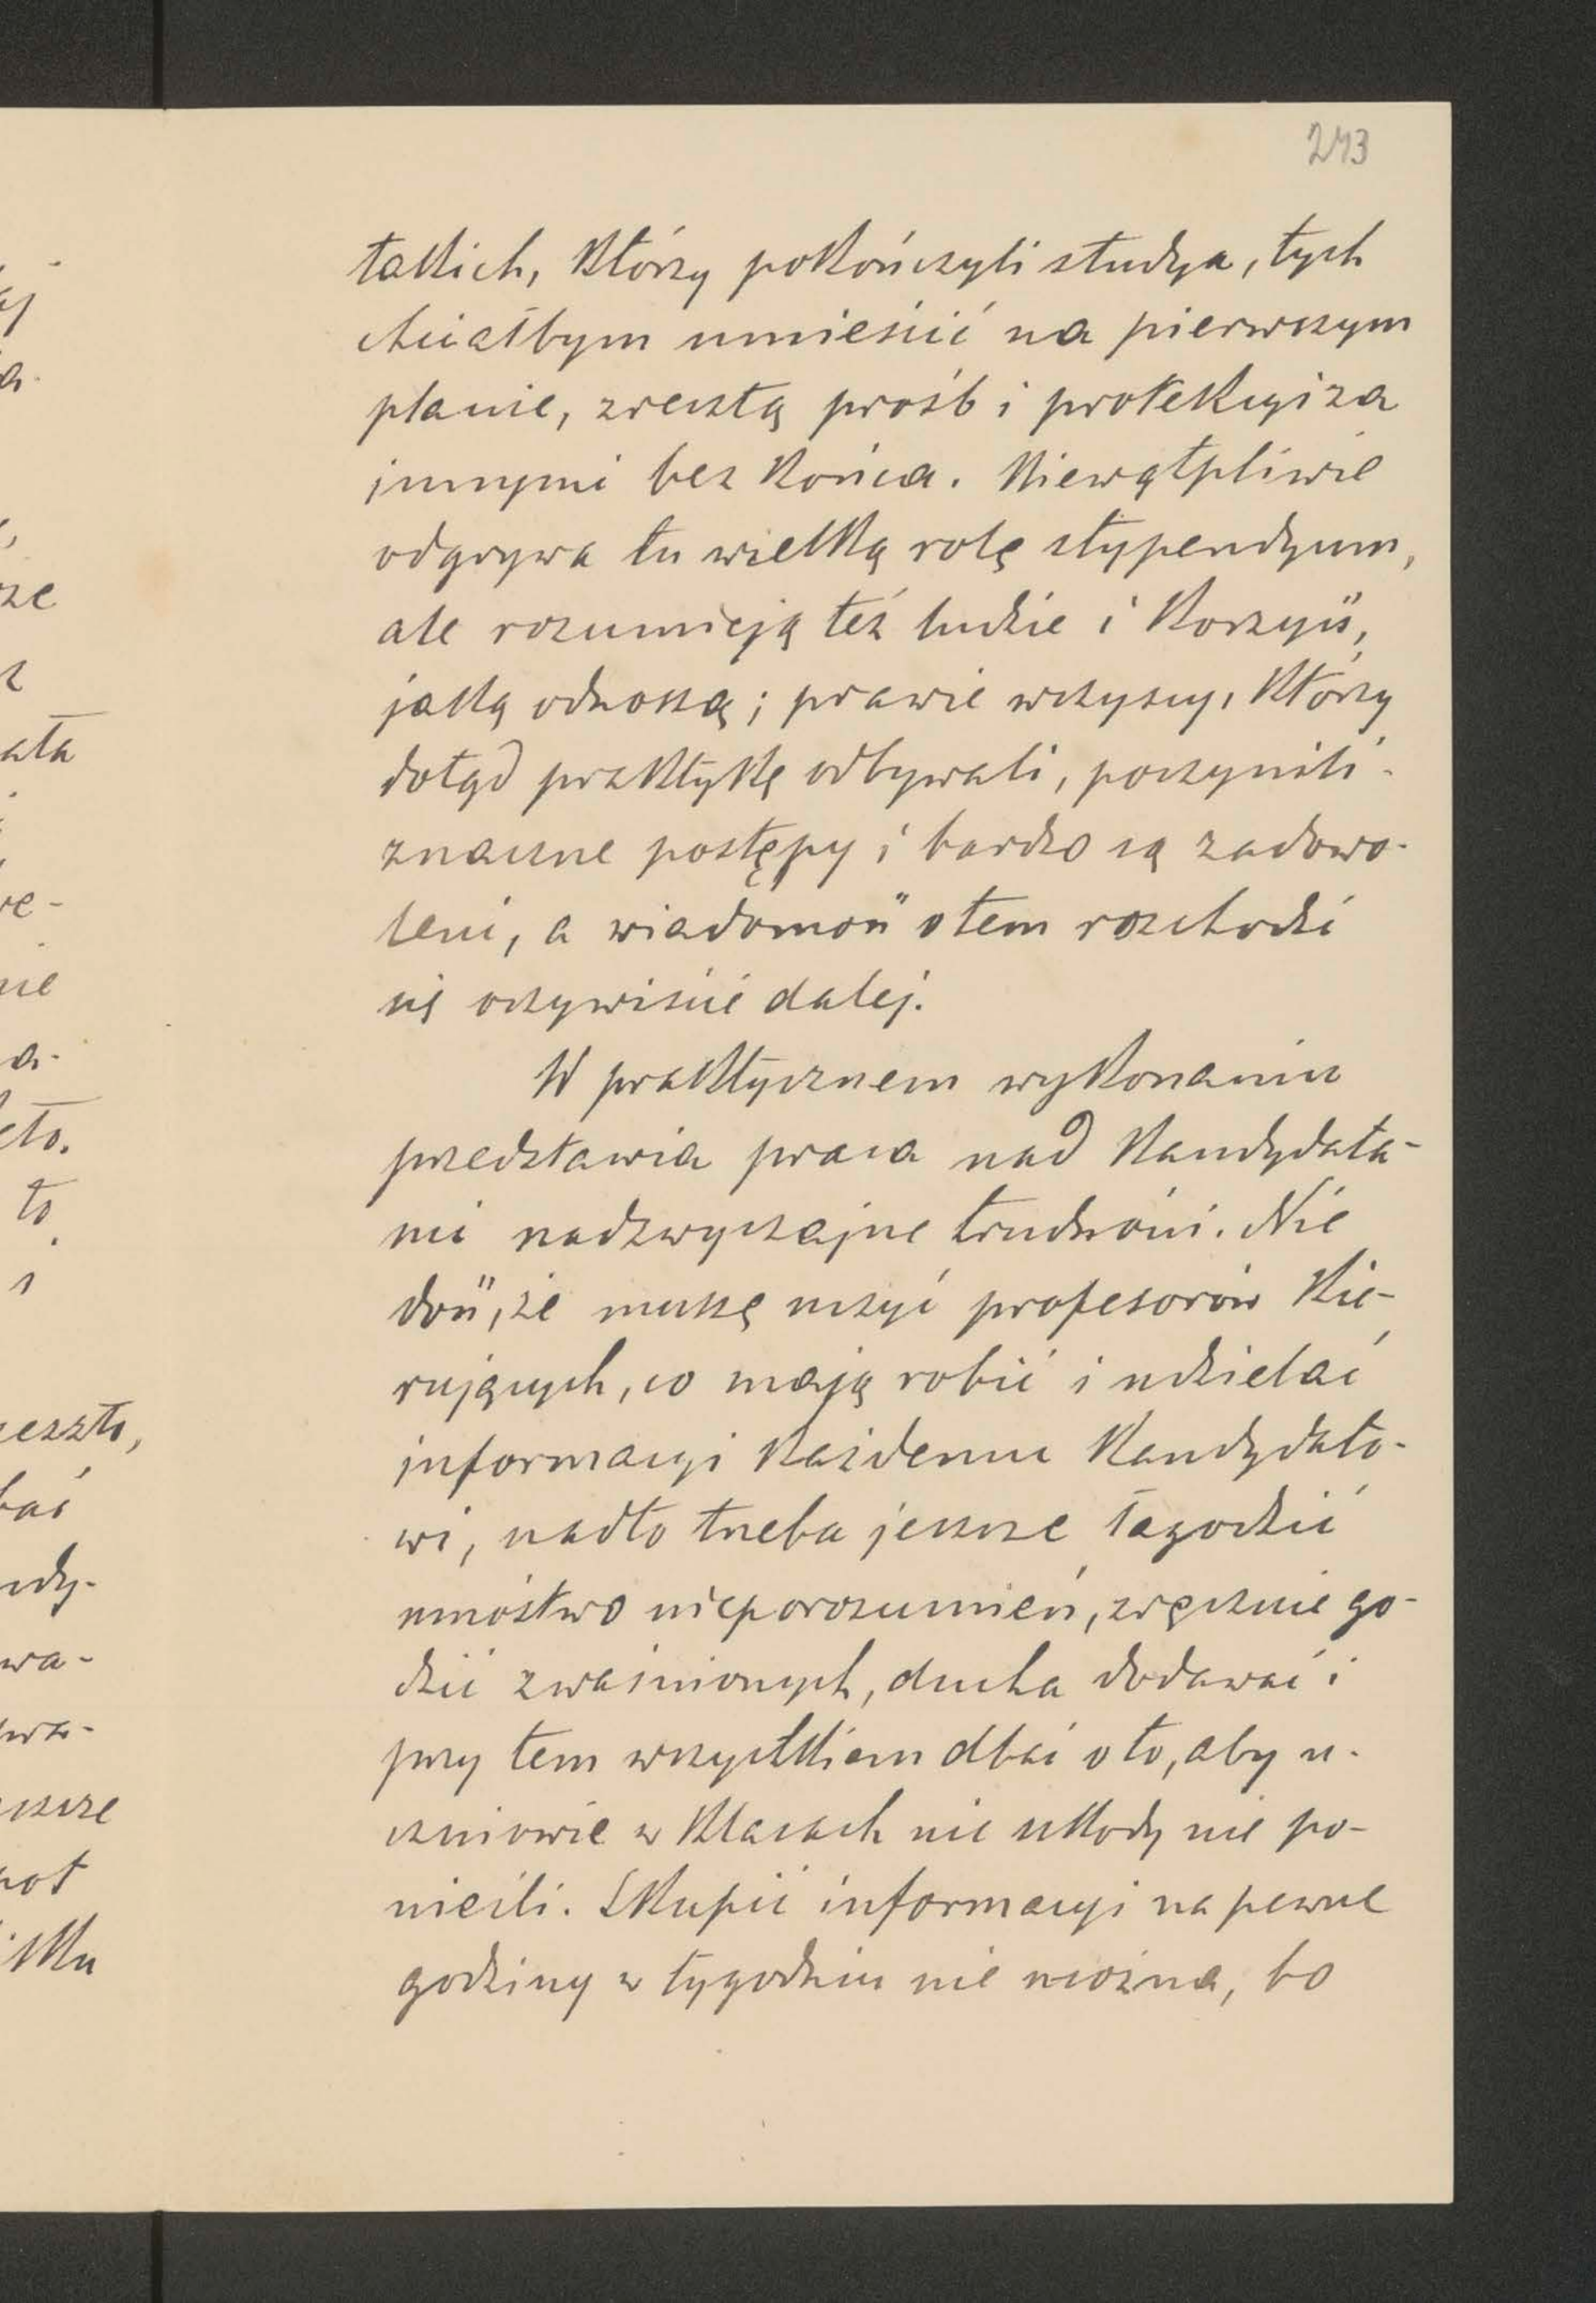 243
takich, którzy pokończyli studya, tych
chciałbym umieścić na pierwszym
planie, zresztą próśb i protekcyi za
innymi bez końca. Niewątpliwie
odgrywa tu wielką rolę stypendyum,
ale rozumieją też ludzie i korzyść,
jaką odnoszą; prawie wszyscy, którzy
dotąd praktykę odbywali, poczynili
znaczne postępy i bardzo są zadowo-
leni, a wiadomość o tem rozchodzi
się oczywiście dalej.
W praktycznem wykonaniu
przedstawia praca nad kandydata-
mi nadzwyczajne trudności. Nie
dość, że muszę uczyć profesorów kie-
rujących, co mają robić i udzielać
informacyi każdemu kandydato-
wi, nadto trzeba jeszcze łagodzić
mnóstwo nieporozumień, zręcznie go-
dzić zwaśnionych, ducha dodawać i
przy tem wszystkiem dbać o to, aby u-
czniowie w klasach nic szkody nie po-
nieśli. Skupić informacyi na pewne
godziny w tygodniu nie można, bo
ata
re-
nie
a-
to
eszło,
bać
ndy-
wa-